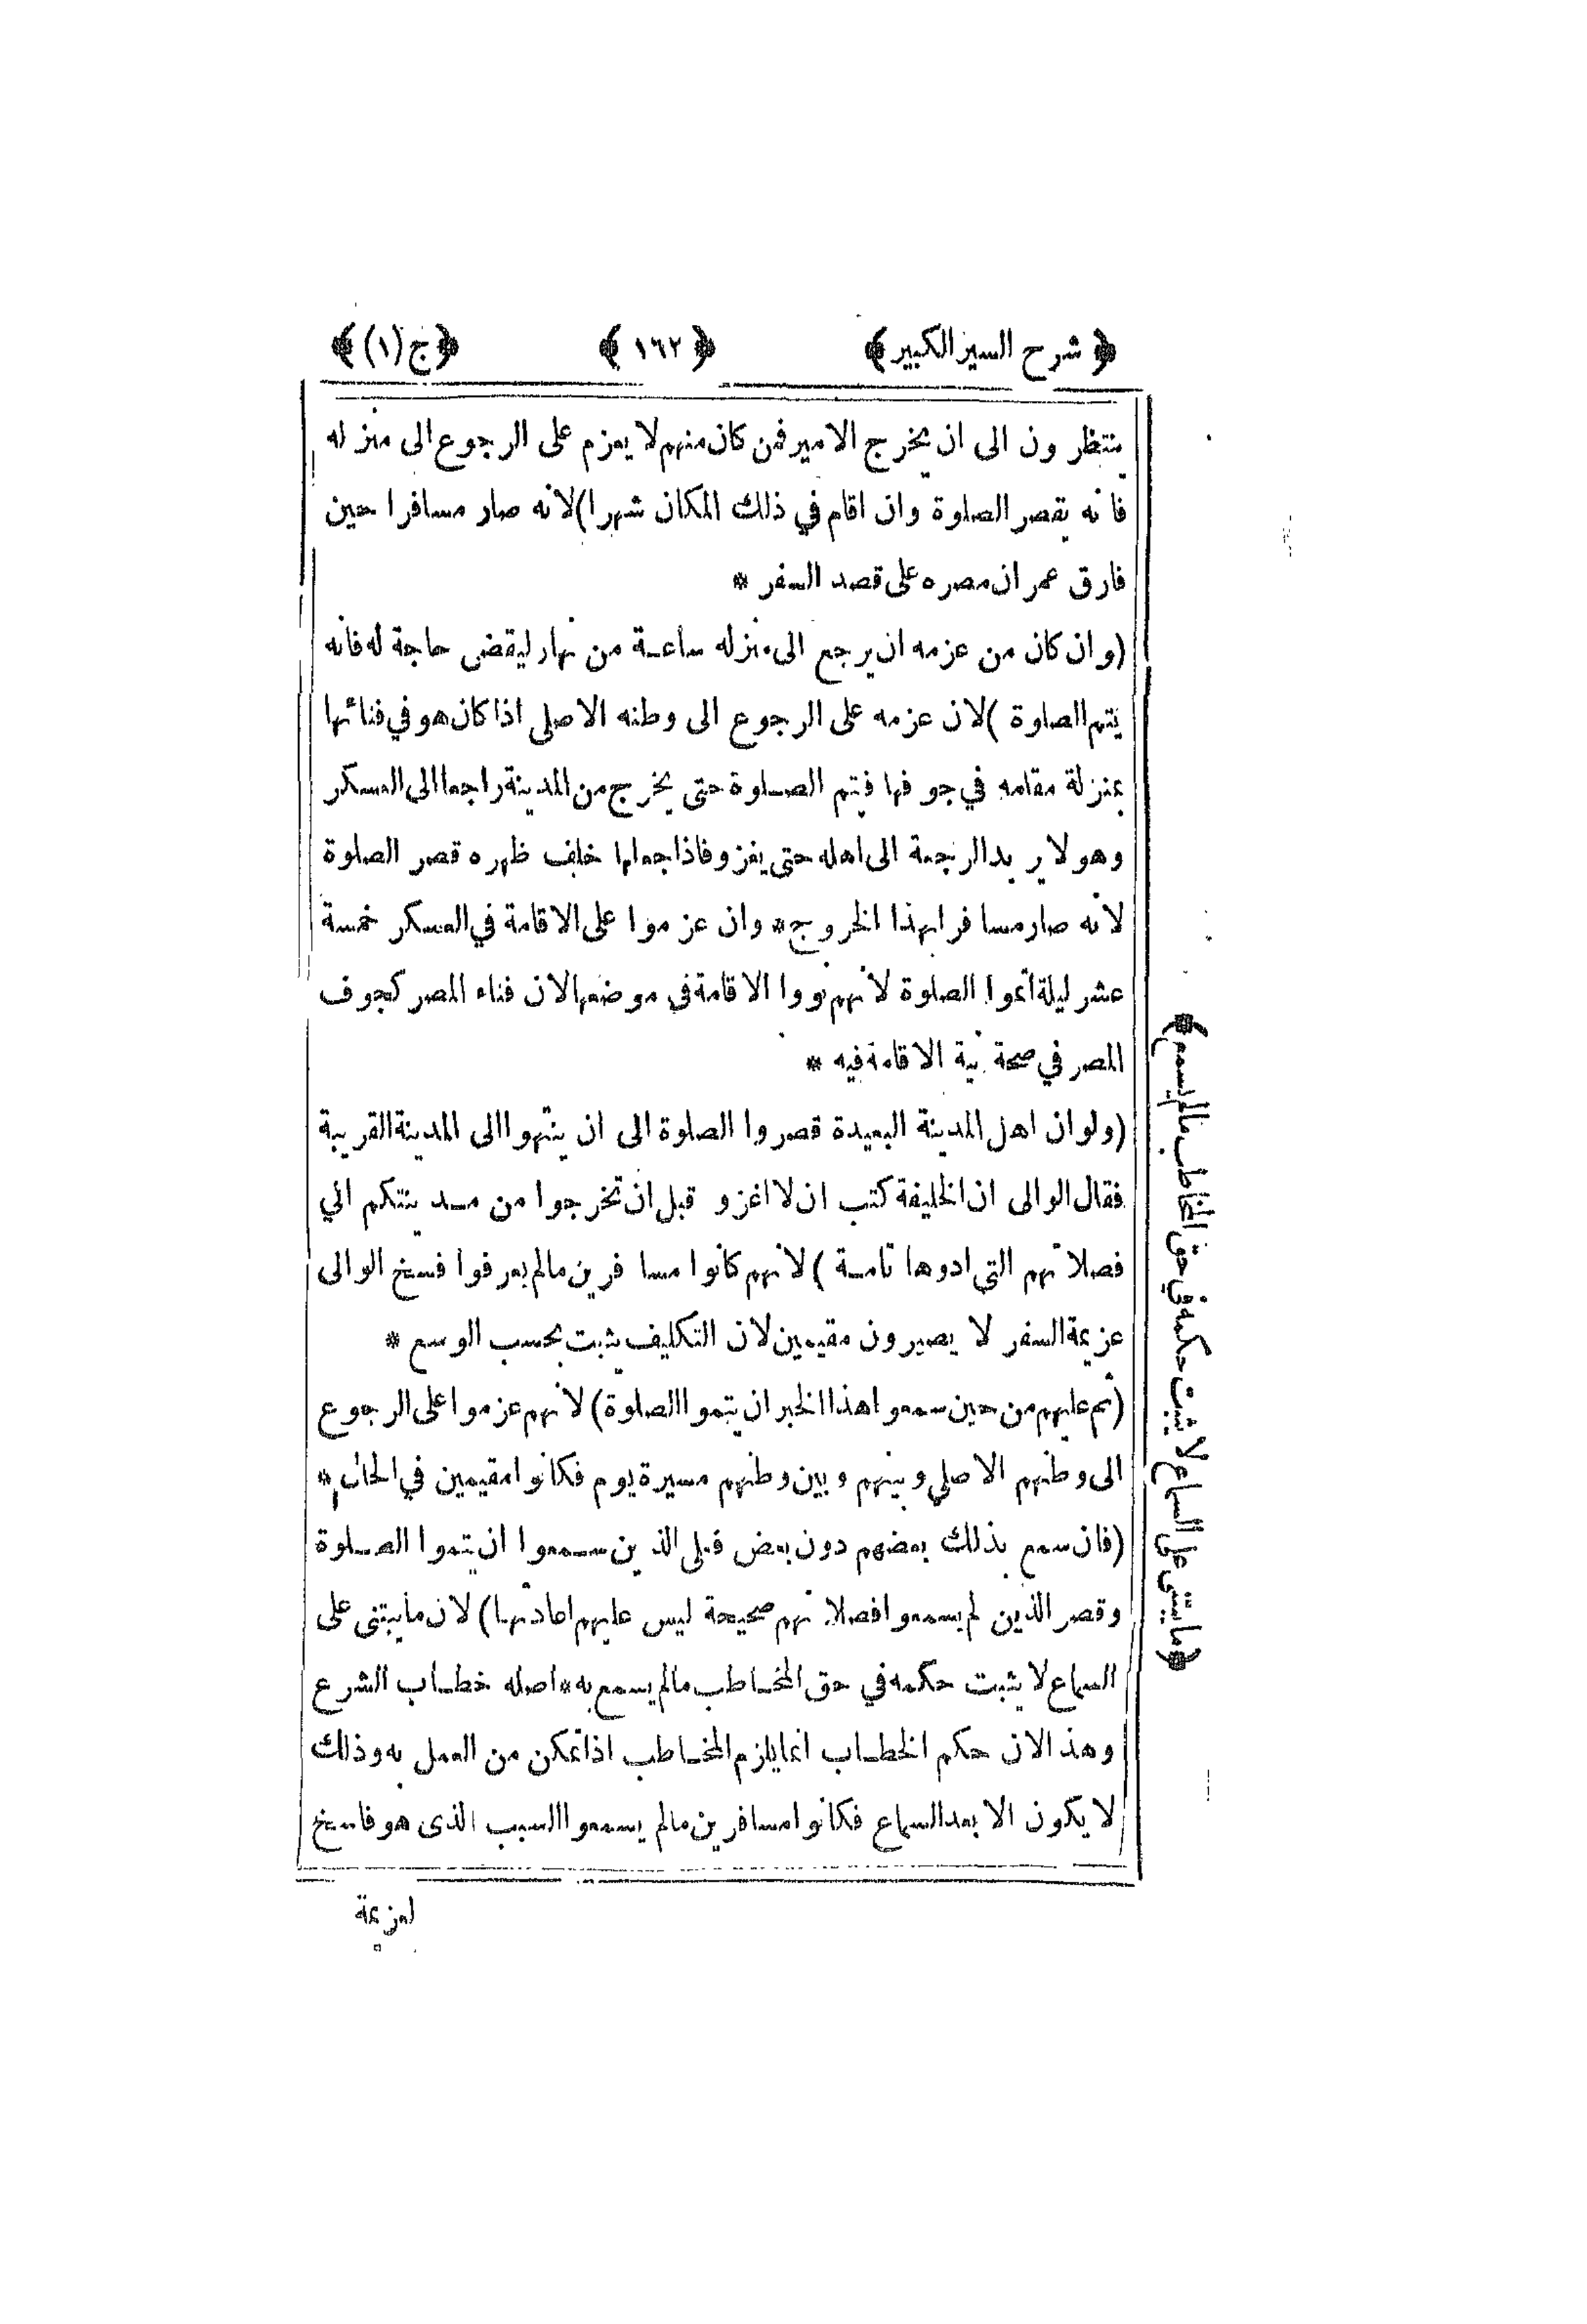 ﴿ شرح السير الكبير ﴾ ﴿ ١٦٢ ﴾ ﴿ ج (١) ﴾
ينتظرون الى ان يخرج الامير فمن كان منهم لا يعزم على الرجوع الى منزله
فانه يقصر الصلوة وان اقام في ذلك المكان شهرا) لانه صار مسافرا حين
فارق عمران مصره على قصد السفر *
(وان كان من عزمه ان يرجع الى منزله ساعة من نهار ليقضى حاجة له فانه
يتم الصلوة) لان عزمه على الرجوع الى وطنه الاصلى اذا كان هو في فنائها
بمنزلة مقامه في جوفها فيتم الصلوة حتى يخرج من المدينة راجعا الى العسكر
وهو لا يريد الرجعة الى اهله حتى يغزو فاذا جعلها خلف ظهره قصر الصلوة
لانه صار مسافرا بهذا الخروج * وان عزموا على الاقامة في العسكر خمسة
عشر ليلة اتموا الصلوة لانهم نووا الاقامة في موضعها لان فناء المصر كجوف
المصر في صحة نية الاقامة فيه *
(ولو ان اهل المدينة البعيدة قصروا الصلوة الى ان ينتهوا الى المدينة القريبة
فقال الوالى ان الخليفة كتب ان لا اغزو قبل ان تخرجوا من مدينتكم الي
فصلاتهم التى ادوها تامة) لانهم كانوا مسافرين مالم يعرفوا فسخ الوالى
عزيمة السفر لا يصيرون مقيمين لان التكليف يثبت بحسب الوسع *
(ثم عليهم من حين سمعوا هذا الخبر ان يتموا الصلوة) لانهم عزموا على الرجوع
الى وطنهم الاصلي وبينهم وبين وطنهم مسيرة يوم فكانوا مقيمين في الحال *
(فان سمع بذلك بعضهم دون بعض فعلى الذين سمعوا ان يتموا الصلوة
وقصر الذين لم يسمعوا فصلاتهم صحيحة ليس عليهم اعادتها) لان ما يبتنى على
السماع لا يثبت حكمه في حق المخاطب مالم يسمع به * اصله خطاب الشرع
وهذا لان حكم الخطاب انما يلزم المخاطب اذا تمكن من العمل به وذلك
لا يكون الا بعد السماع فكانوا مسافرين مالم يسمعوا السبب الذى هو فاسخ
لعزيمة
﴿ ما يبتنى على السماع لا يثبت حكمه في حق المخاطب مالم يسمع ﴾